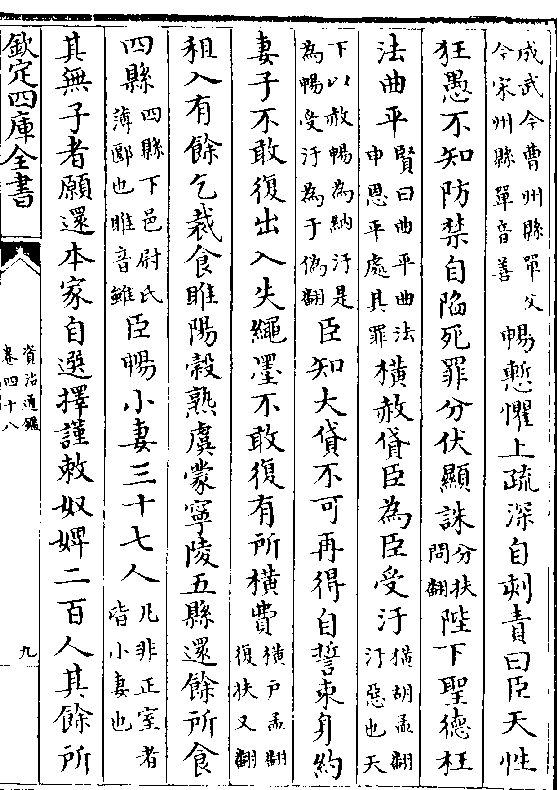 成武今曹州縣單父
今宋州縣單音善
暢慙懼上疏深自刻責曰臣天性
狂愚不知防禁自陷死罪分伏顯誅
分扶
問翻
陛下聖德枉
法曲平
賢曰曲平曲法
申恩平處其罪
橫赦貸臣為臣受汙
橫胡孟翻
汙惡也天
下以赦暢為納汙是
為暢受汙為于偽翻
臣知大貸不可再得自誓束身約
妻子不敢復出入失繩墨不敢復有所橫費
橫戶孟翻
復扶又翻
租入有餘乞裁食睢陽穀熟虞蒙寧陵五縣還餘所食
四縣
四縣下邑尉氏
薄郾也睢音雖
臣暢小妻三十七人
凡非正室者
皆小妻也
其無子者願還本家自選擇謹敕奴婢二百人其餘所
欽定四庫全書
資治通鑑
卷四十八
九